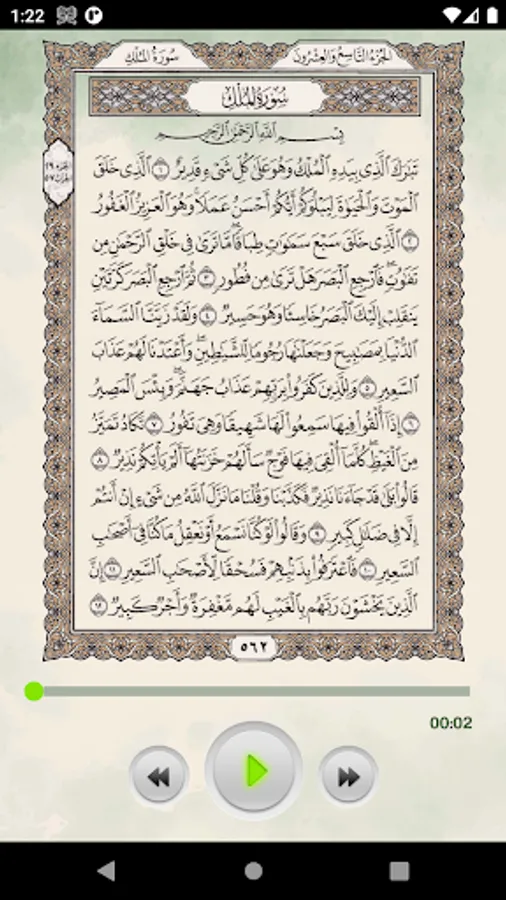 1:22
سُورَةُ المُلْكِ الجُزْءُ التَّاسِعُ وَالعِشْرُونَ
سُورَةُ المُلْكِ
بِسْمِ اللَّهِ الرَّحْمَٰنِ الرَّحِيمِ
تَبَٰرَكَ ٱلَّذِى بِيَدِهِ ٱلْمُلْكُ وَهُوَ عَلَىٰ كُلِّ شَىْءٍ قَدِيرٌ ١ ٱلَّذِى خَلَقَ
ٱلْمَوْتَ وَٱلْحَيَوٰةَ لِيَبْلُوَكُمْ أَيُّكُمْ أَحْسَنُ عَمَلًا ۚ وَهُوَ ٱلْعَزِيزُ ٱلْغَفُورُ
٢ ٱلَّذِى خَلَقَ سَبْعَ سَمَٰوَٰتٍ طِبَاقًا ۖ مَّا تَرَىٰ فِى خَلْقِ ٱلرَّحْمَٰنِ مِن
تَفَٰوُتٍ ۖ فَٱرْجِعِ ٱلْبَصَرَ هَلْ تَرَىٰ مِن فُطُورٍ ٣ ثُمَّ ٱرْجِعِ ٱلْبَصَرَ كَرَّتَيْنِ
يَنقَلِبْ إِلَيْكَ ٱلْبَصَرُ خَاسِئًا وَهُوَ حَسِيرٌ ٤ وَلَقَدْ زَيَّنَّا ٱلسَّمَآءَ
ٱلدُّنْيَا بِمَصَٰبِيحَ وَجَعَلْنَٰهَا رُجُومًا لِّلشَّيَٰطِينِ ۖ وَأَعْتَدْنَا لَهُمْ عَذَابَ
ٱلسَّعِيرِ ٥ وَلِلَّذِينَ كَفَرُوا۟ بِرَبِّهِمْ عَذَابُ جَهَنَّمَ ۖ وَبِئْسَ ٱلْمَصِيرُ
٦ إِذَآ أُلْقُوا۟ فِيهَا سَمِعُوا۟ لَهَا شَهِيقًا وَهِىَ تَفُورُ ٧ تَكَادُ تَمَيَّزُ
مِنَ ٱلْغَيْظِ ۖ كُلَّمَآ أُلْقِىَ فِيهَا فَوْجٌ سَأَلَهُمْ خَزَنَتُهَآ أَلَمْ يَأْتِكُمْ نَذِيرٌ ٨
قَالُوا۟ بَلَىٰ قَدْ جَآءَنَا نَذِيرٌ فَكَذَّبْنَا وَقُلْنَا مَا نَزَّلَ ٱللَّهُ مِن شَىْءٍ إِنْ أَنتُمْ
إِلَّا فِى ضَلَٰلٍ كَبِيرٍ ٩ وَقَالُوا۟ لَوْ كُنَّا نَسْمَعُ أَوْ نَعْقِلُ مَا كُنَّا فِىٓ أَصْحَٰبِ
ٱلسَّعِيرِ ١٠ فَٱعْتَرَفُوا۟ بِذَنۢبِهِمْ فَسُحْقًا لِّأَصْحَٰبِ ٱلسَّعِيرِ ١١ إِنَّ
ٱلَّذِينَ يَخْشَوْنَ رَبَّهُم بِٱلْغَيْبِ لَهُم مَّغْفِرَةٌ وَأَجْرٌ كَبِيرٌ ١٢
٥٦٢
00:02